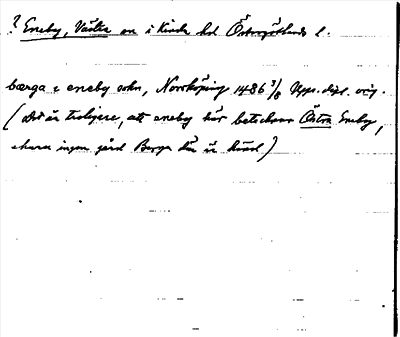 ? Eneby, Västra sn i Kinda hd Östergötlands l.
bærga i eneby sokn, Norrköping 1486 3/8 Upps. dipl. orig.
(det är troligare, att eneby här betecknar Östra Eneby,
ehuru ingen gård Berga där är känd)